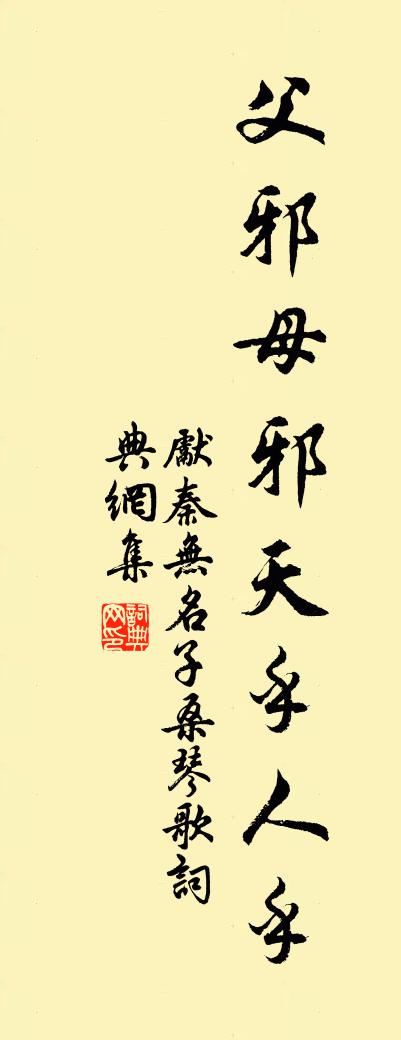 父邪母邪天乎人乎
獻秦無名子桑琴歌詞
典網集
詞典网印